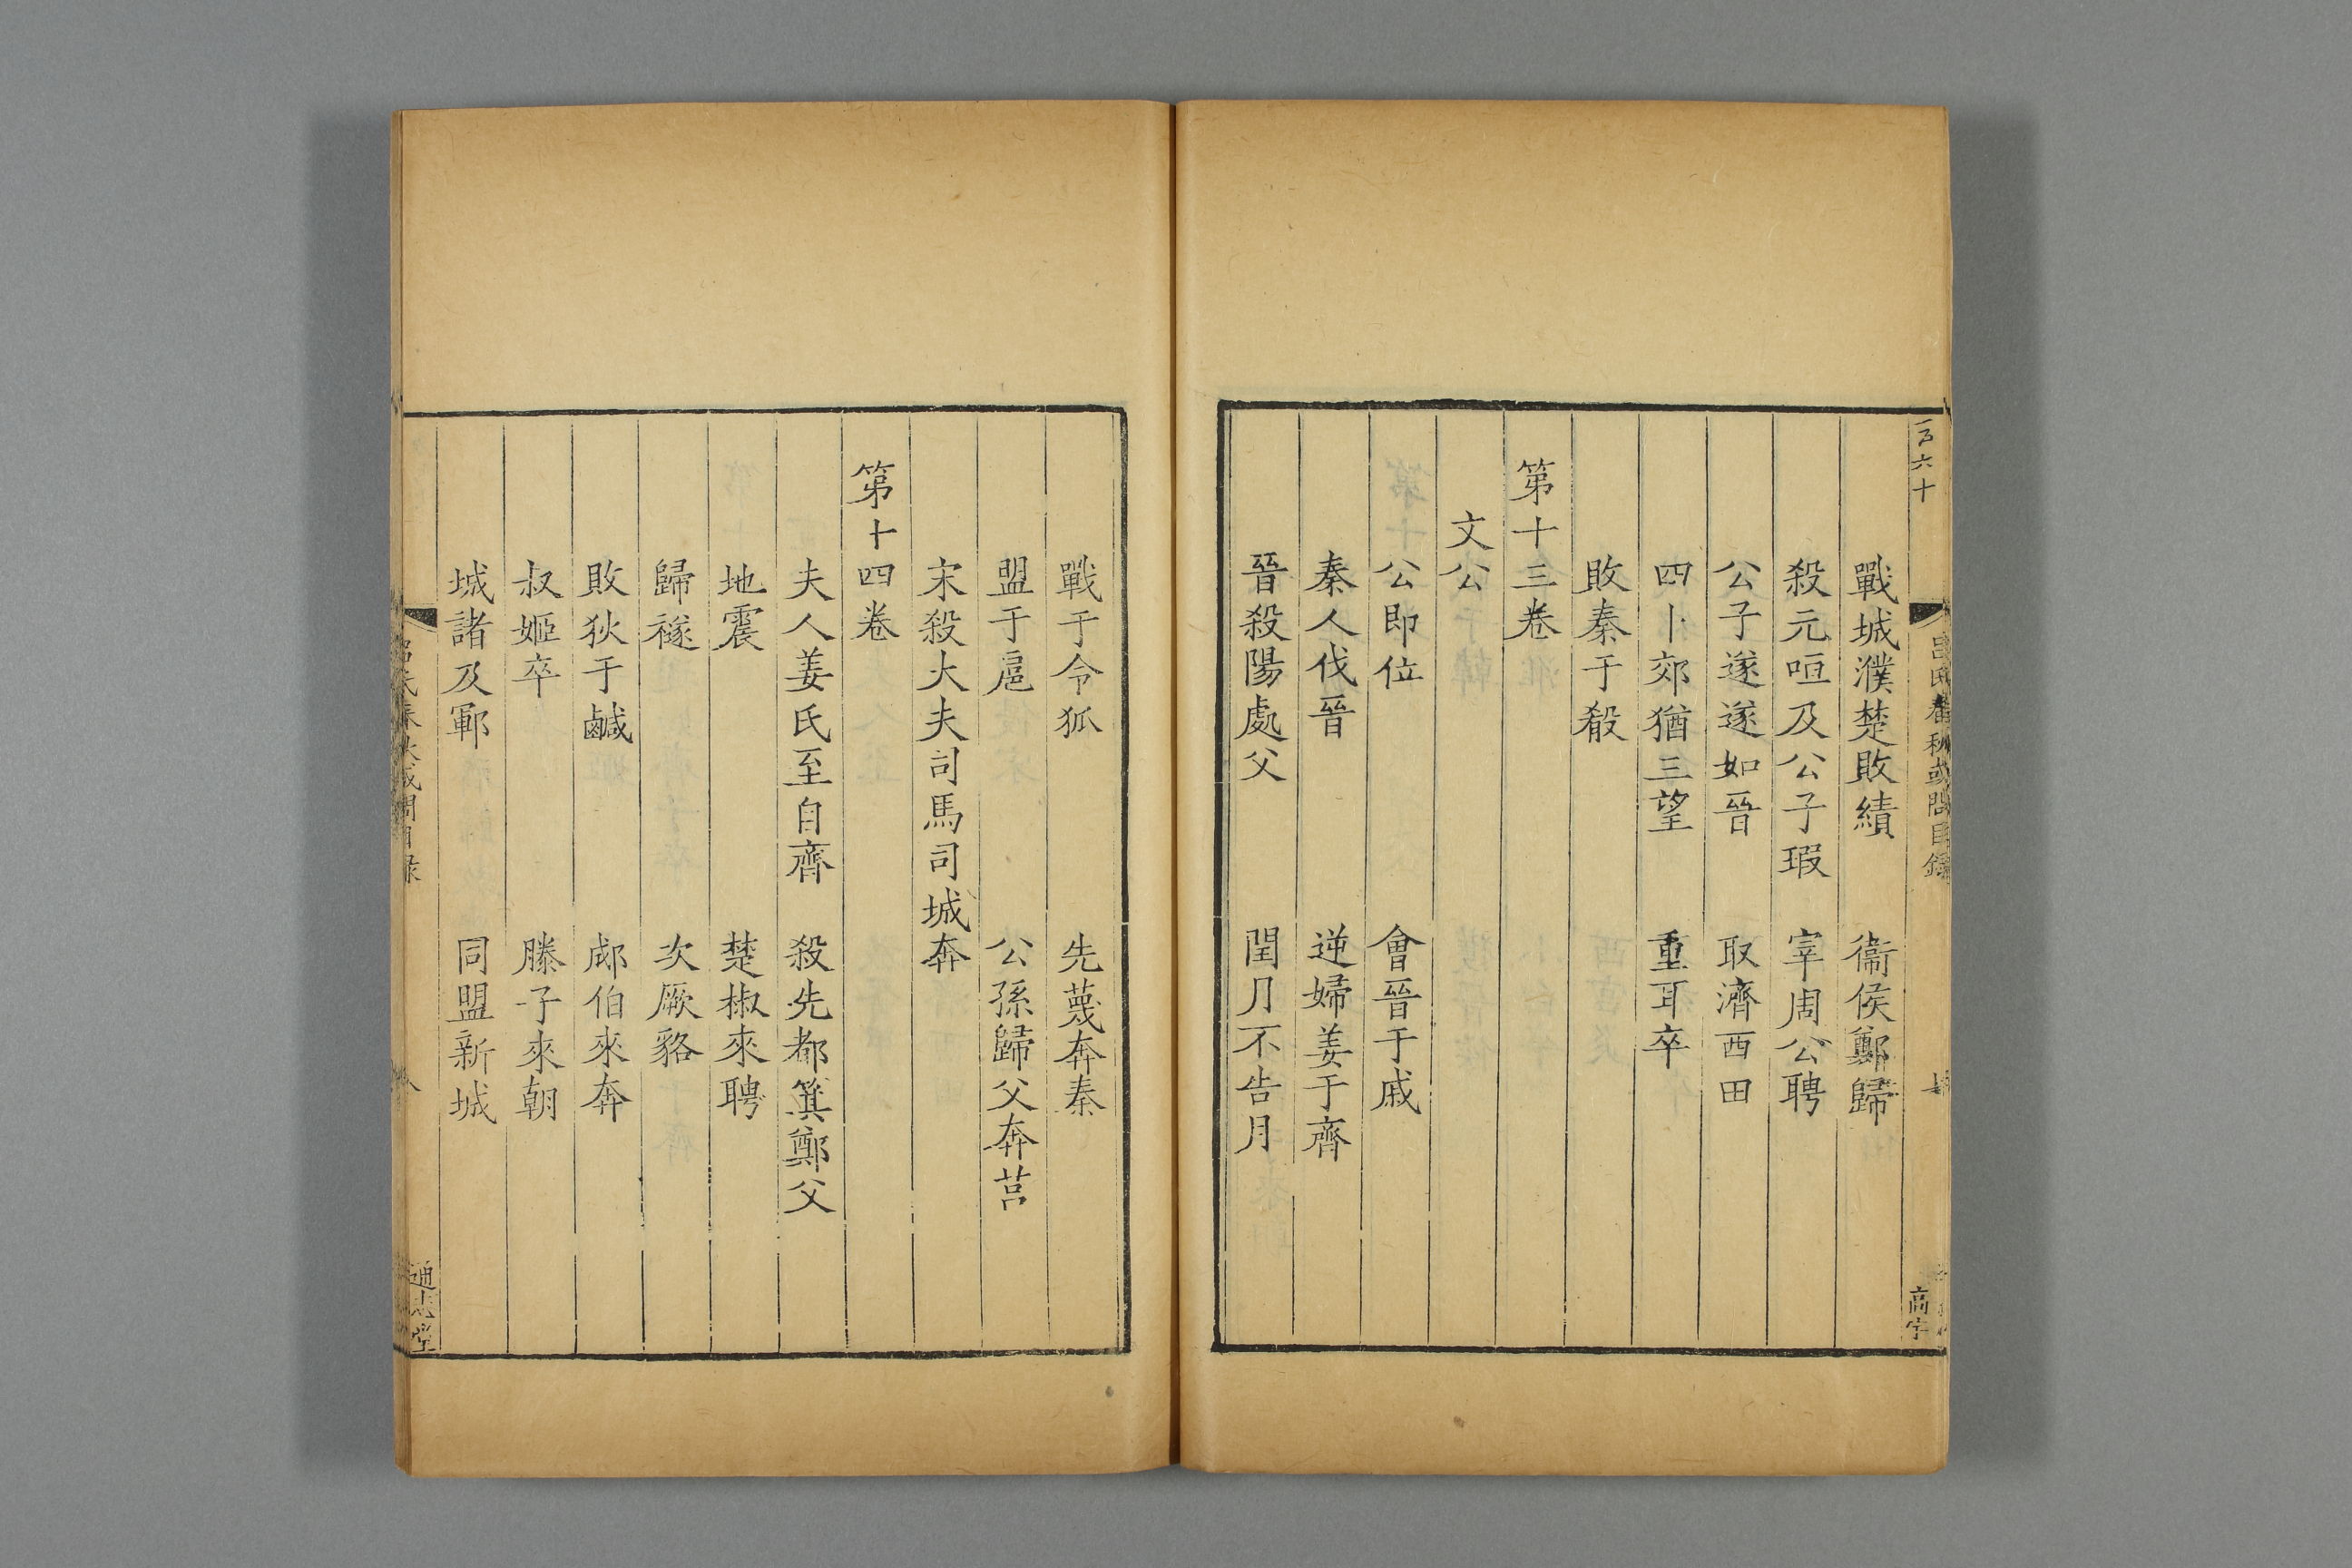 戰城濮楚敗績　衞侯鄭歸
殺元咺及公子瑕　宰周公聘
公子遂遂如晉　取濟西田
四卜郊猶三望　重耳卒
敗秦于殽
第十三卷
文公
公即位　會晉于戚
秦人伐晉　逆婦姜于齊
晉殺陽處父　閏月不告月
戰于令狐　先蔑奔秦
盟于扈　公孫歸父奔莒
宋殺大夫司馬司城奔
第十四卷
夫人姜氏至自齊　殺先都箕鄭父
地震　楚椒來聘
歸襚　次厥貉
敗狄于鹹　郕伯來奔
叔姬卒　滕子來朝
城諸及鄆　同盟新城
呂氏春秋或問目錄
通志堂